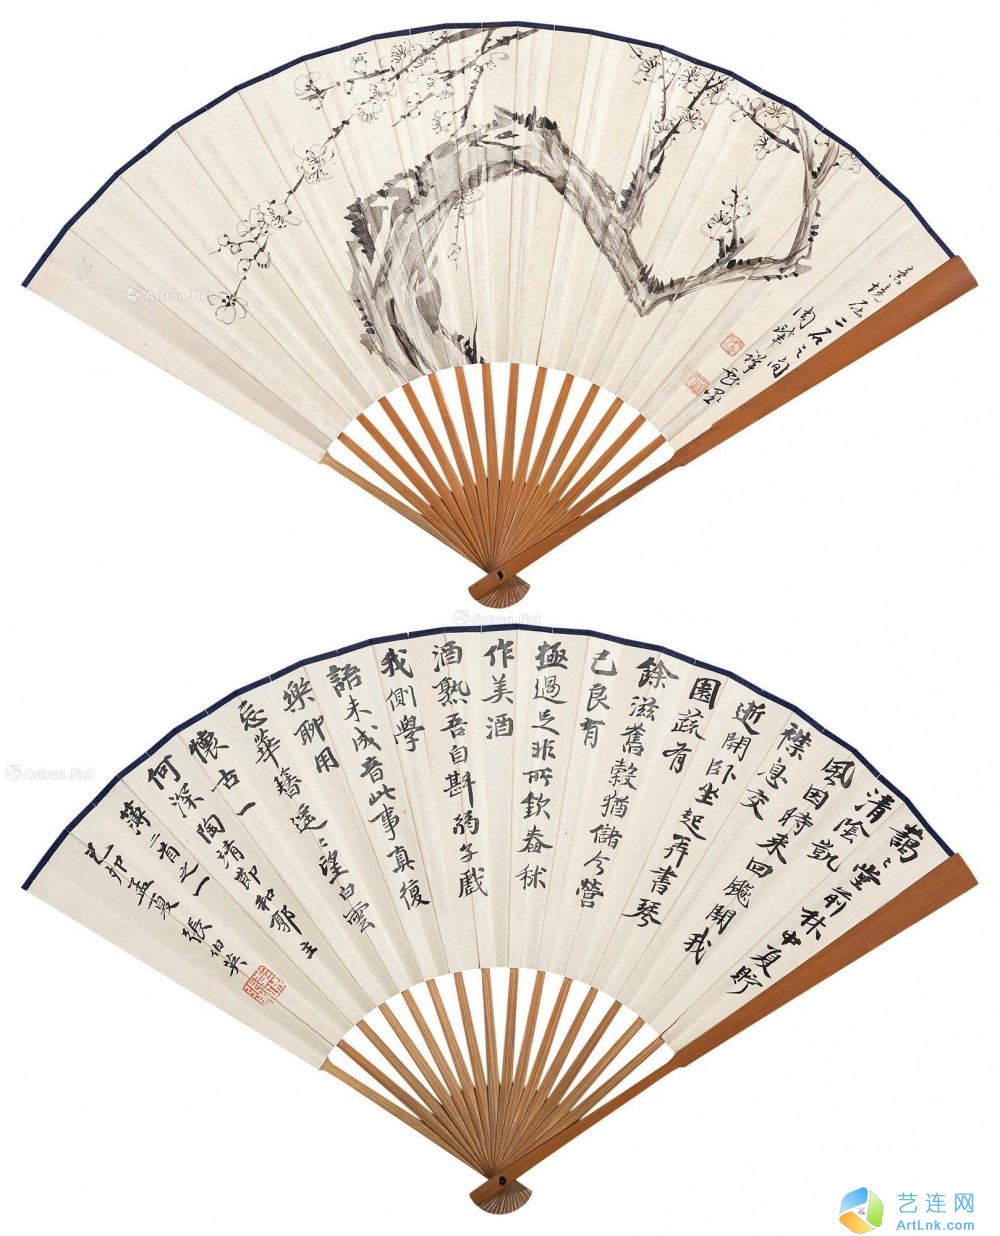 二石之間
周肇祥戲墨
藹〻堂前林中夏貯
清陰凱
風因時來回飇開我
襟息交
逝閒卧坐起弄書琴
園蔬有
餘滋舊穀猶儲今營
己良有
極過足非所欽舂秫
作美酒
酒熟吾自斟弱子戲
我側學
語未成音此事真復
樂聊用
忘華簪遥〻望白雲
懷古一
何深陶靖節和郭主
簿二首之一
己卯孟夏張伯英
Artron.Net
Artron.Net
Artron.Net
艺连网
ArtLnk.com